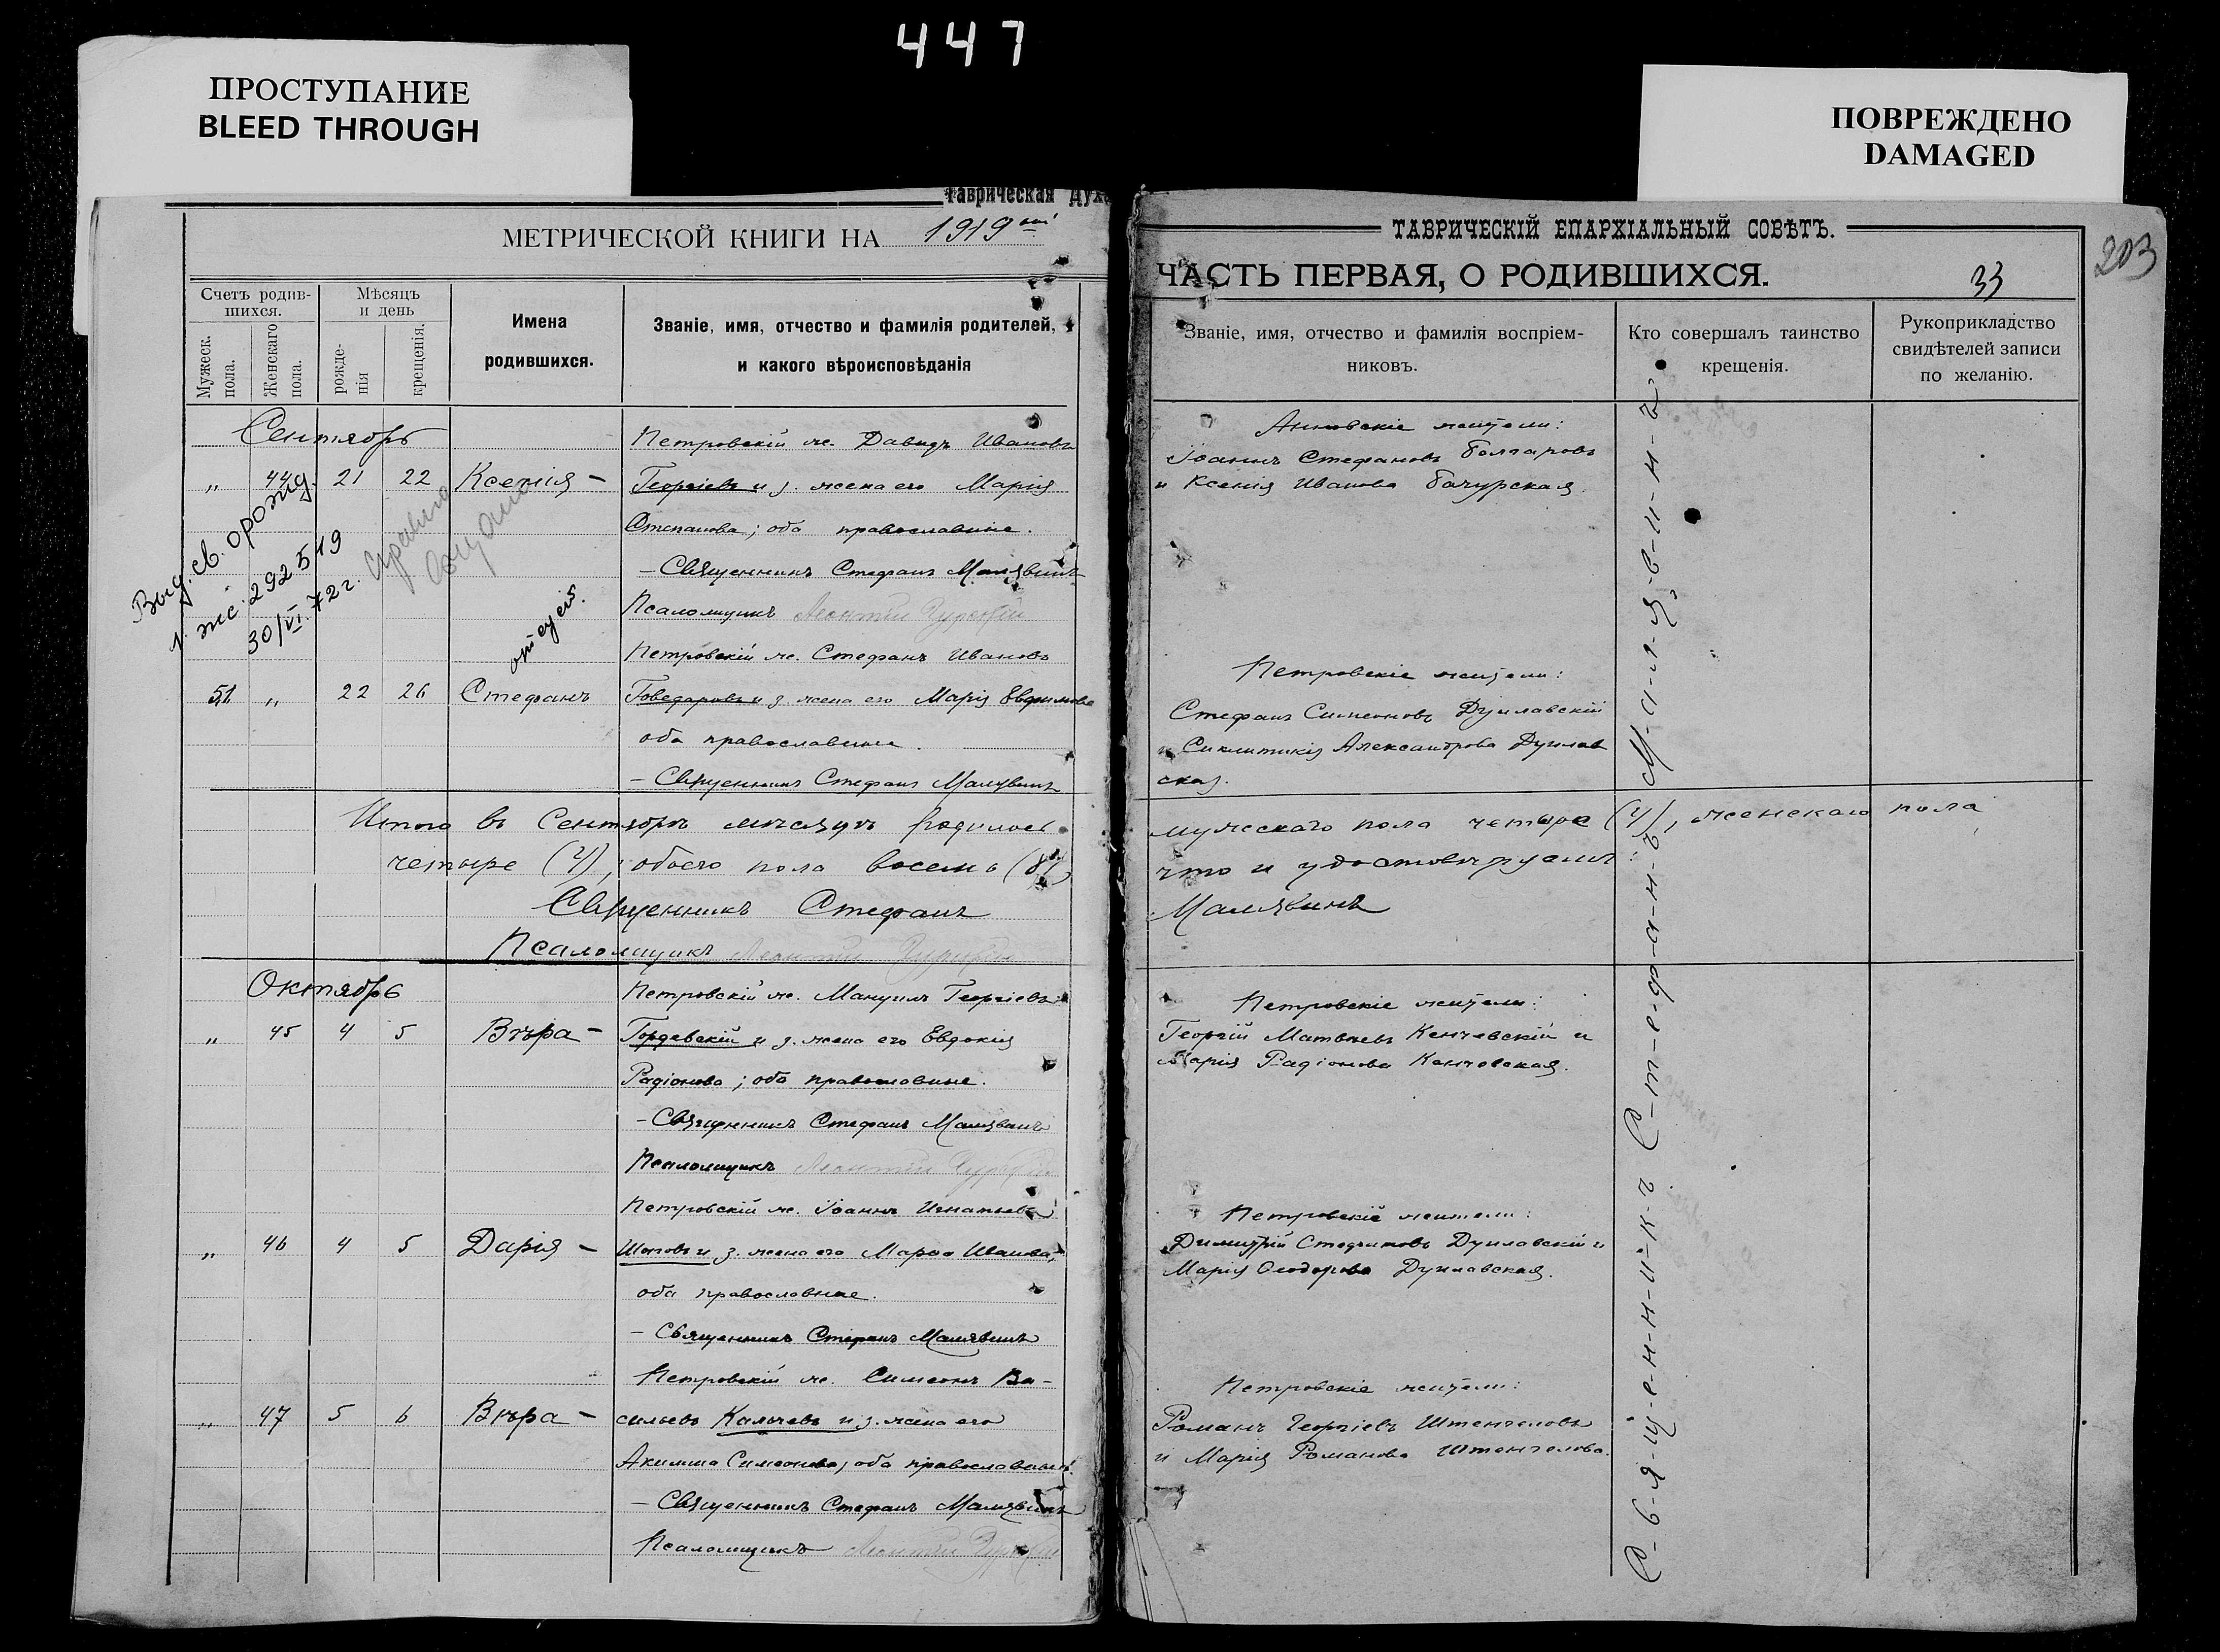 447
ПРОСТУПАНИЕ
BLEED THROUGH
ПОВРЕЖДЕНО
DAMAGED
Таврическая Дух
МЕТРИЧЕСКОЙ КНИГИ НА 1919
Счетъ родив-
шихся.
Мужеск.
пола.
Женскаго
пола.
Мѣсяцъ
и день
рожде-
нія
крещенія.
Имена
родившихся.
Званіе, имя, отчество и фамилія родителей,
и какого вѣроисповѣданія
Сентябрь
Петровскій ж. Давидъ Ивановъ
„ 44 21 22 Ксенія – Георгіевъ и з. жена его Марія
Степанова; оба православные.
– Священникъ Стефанъ Малявинъ
Псаломщикъ Леонтій
Выд. св. о рожд.
292519
30/VI.72г.
Петровскій ж. Стефанъ Ивановъ
51 „ 22 26 Стефанъ Говедаровъ и з. жена его Марія Евфимова
оба православные.
– Священникъ Стефанъ Малявинъ
Итого въ Сентябрѣ мѣсяцѣ родилось
четыре (4), обоего пола восемь (8),
Священникъ Стефанъ
Псаломщикъ Леонтій
Октябрь
Петровскій ж. Мануилъ Георгіевъ
„ 45 4 5 Вѣра – Гордевскій и з. жена его Евдокія
Радіонова; оба православные.
– Священникъ Стефанъ Малявинъ
Псаломщикъ Леонтій
Петровскій ж. Іоаннъ Игнатьевъ
„ 46 4 5 Дарія – Шоповъ и з. жена его Марѳа Иванова,
оба православные.
– Священникъ Стефанъ Малявинъ
Петровскій ж. Симеонъ Ва-
„ 47 5 6 Вѣра – сильевъ Калчевъ и з. жена его
Акилина Симеонова, оба православные.
– Священникъ Стефанъ Малявинъ
Псаломщикъ Леонтій
ТАВРИЧЕСКІЙ ЕПАРХІАЛЬНЫЙ СОВѢТЪ.
203
ЧАСТЬ ПЕРВАЯ, О РОДИВШИХСЯ.
33
Званіе, имя, отчество и фамилія воспріем-
никовъ.
Кто совершалъ таинство
крещенія.
Рукоприкладство
свидѣтелей записи
по желанію.
Анновскіе жители:
Іоаннъ Стефановъ Болгаровъ
и Ксенія Иванова Бачурская.
Петровскіе жители:
Стефанъ Симеоновъ Дуплавскій
и Синклитикія Александрова Дуплав
ская.
мужскаго пола четыре (4), женскаго пола
что и удостовѣряемъ:
Малявинъ
Петровскіе жители:
Георгій Матвѣевъ Кенчевскій и
Марія Радіонова Кенчевская.
Петровскіе жители:
Димитрій Стефановъ Дуплавскій и
Марія Ѳеодорова Дуплавская.
Петровскіе жители:
Романъ Георгіевъ Штенгеловъ
и Марія Романова Штенгелова.
С-в-я-щ-е-н-н-и-к-ъ С-т-е-ф-а-н-ъ М-а-л-я-в-и-н-ъ